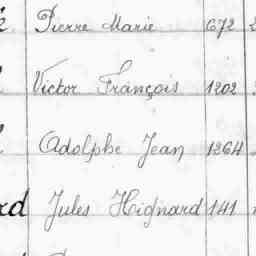 Pierre Marie 672
Victor François 1202
Adolphe Jean 1264
rd Jules Hignard 141